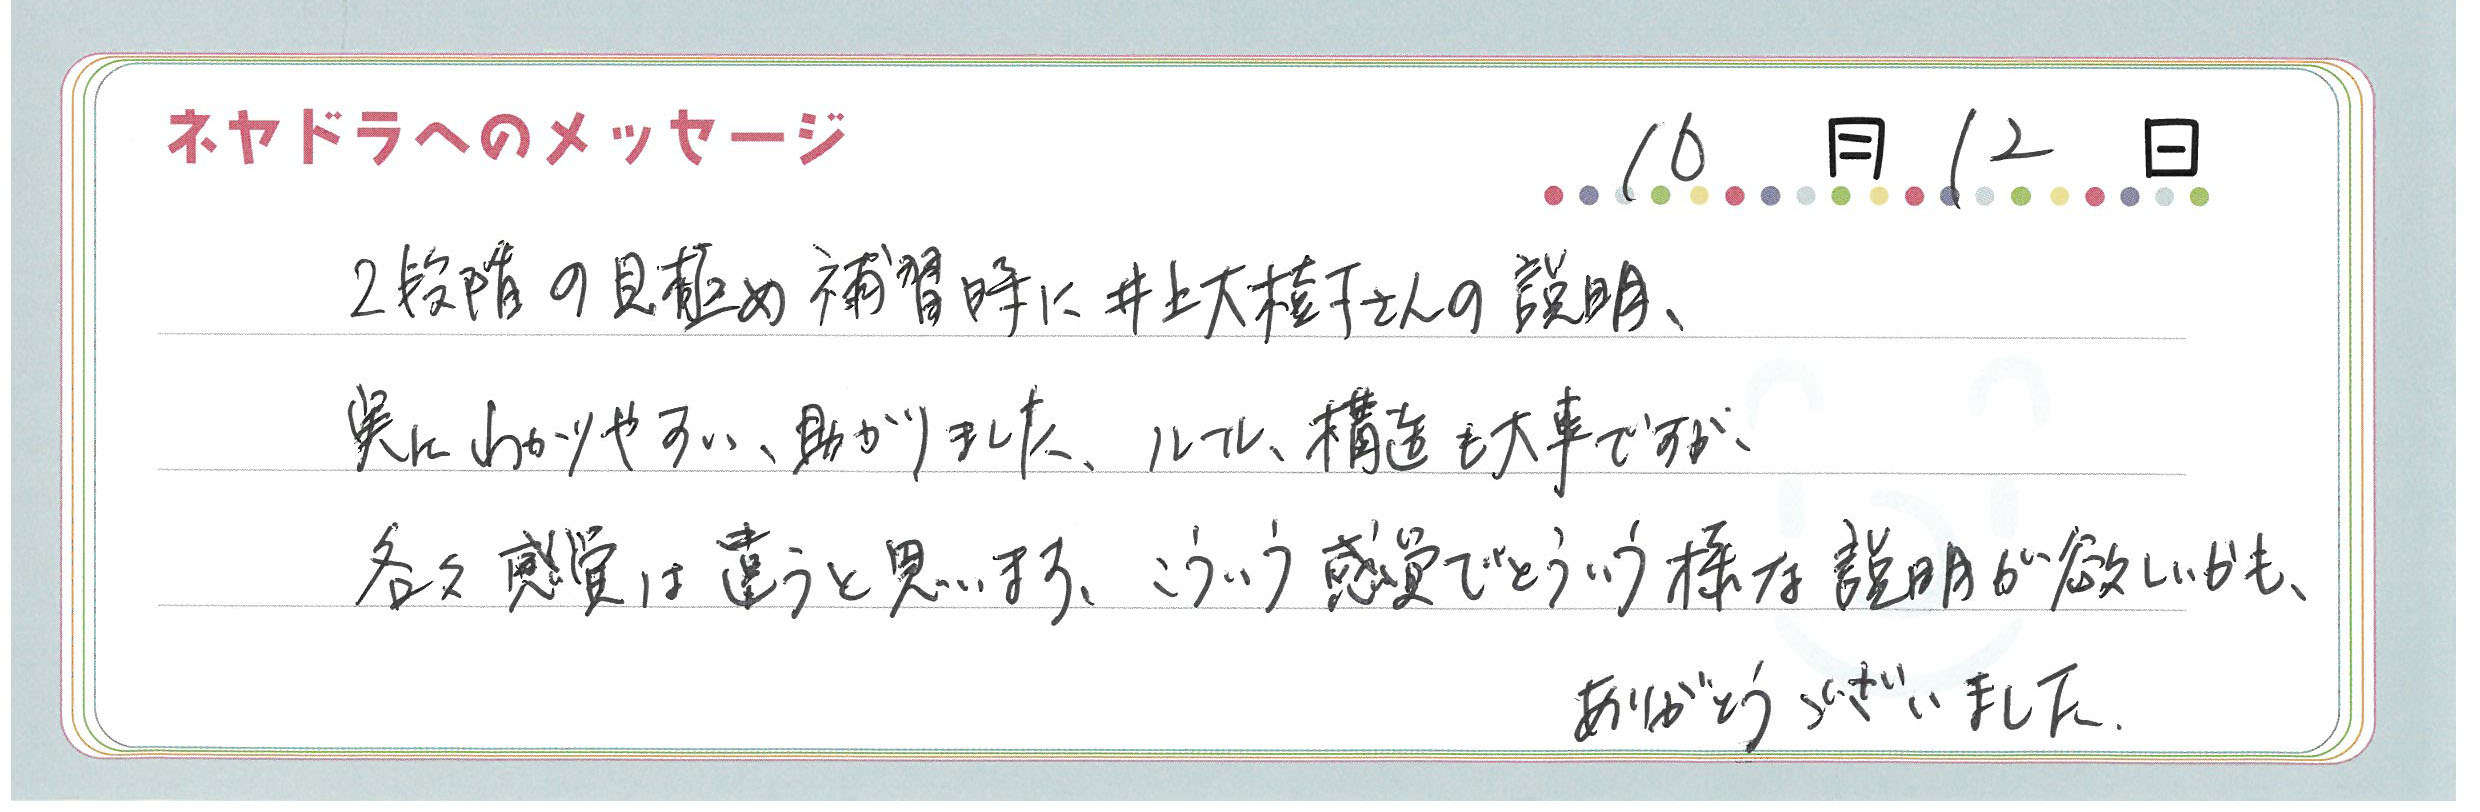 ネヤドラへのメッセージ
10月12日
2段階の見極め補習時に井上大樹さんの説明、
実にわかりやすい、助かりました、ルール、構造も大事ですが、
各々感覚は違うと思います、こういう感覚でどういう様な説明が欲しいかも、
ありがとうございました.